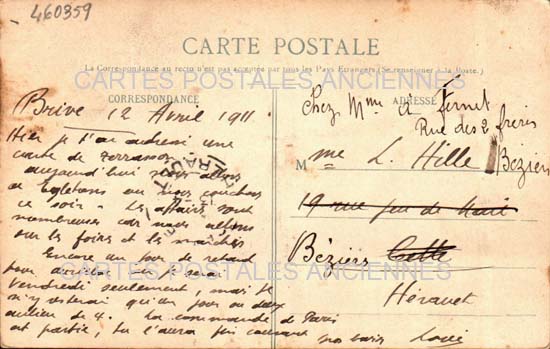 460359
CARTE POSTALE
La Correspondance au recto n'est pas acceptée par tous les Pays Etrangers (Se renseigner à la Poste.)
CARTES POSTALES ANCIENNES
CORRESPONDANCE
ADRESSE
Brive 12 Avril 1911.
Hier je t'ai adressé une
carte de Terrasson
aujourd'hui nous allons
à Egletons où nous couchons
ce soir. Les affaires sont
nombreuses car nous allons
sur les foires et les marchés
Encore un jour de retard
pour
vendredi seulement, mais je
n'y resterai qu'un jour ou deux
au lieu de 4. La commande de Paris
est partie, tu l'auras
nos bais Louis
Chez Mme A Ternet
Rue des 2 frères
Béziers
M me L. Hille
19 rue
Béziers Cette
Hérault
CARTES POSTALES ANCIENNES